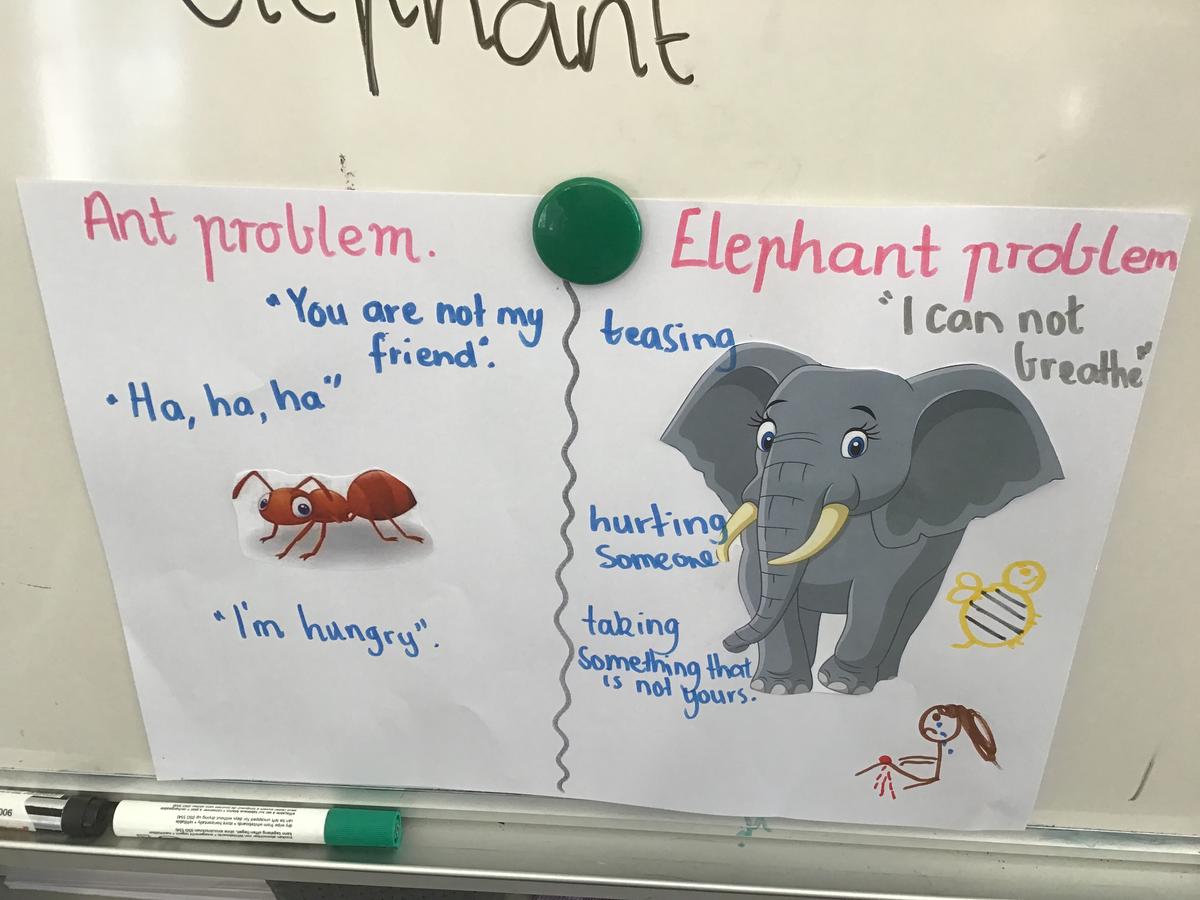 elephant
Ant problem.
"You are not my
friend".
"Ha, ha, ha"
"I'm hungry".
Elephant problem
"I can not
breathe"
teasing
hurting
someone
taking
something that
is not yours.